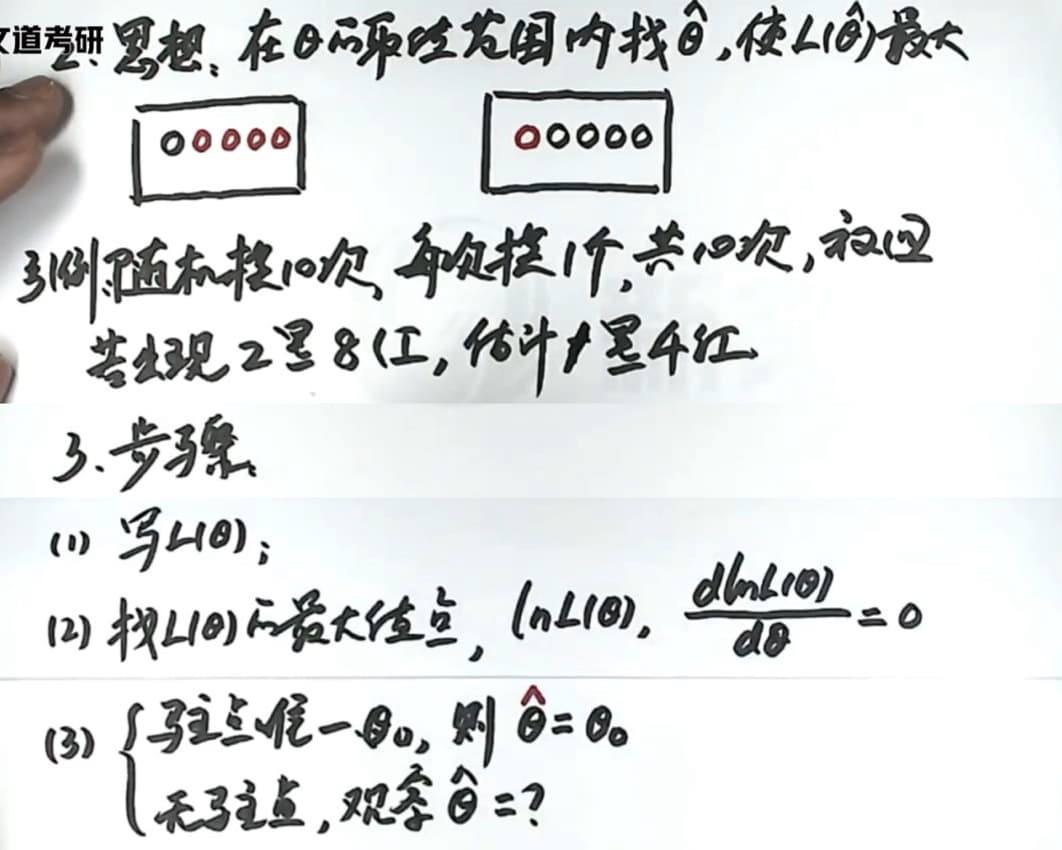 文道考研
2.思想:在θ的取值范围内找θ̂,使L(θ̂)最大
例:随机摸10次,每次摸1个,共10次,放回
若出现2黑8红,估计1黑4红
3.步骤
(1) 写L(θ);
(2) 找L(θ)的最大值点, lnL(θ), dlnL(θ)/dθ = 0
(3) { 驻点唯一θ₀, 则 θ̂ = θ₀
无驻点, 观察 θ̂ = ?